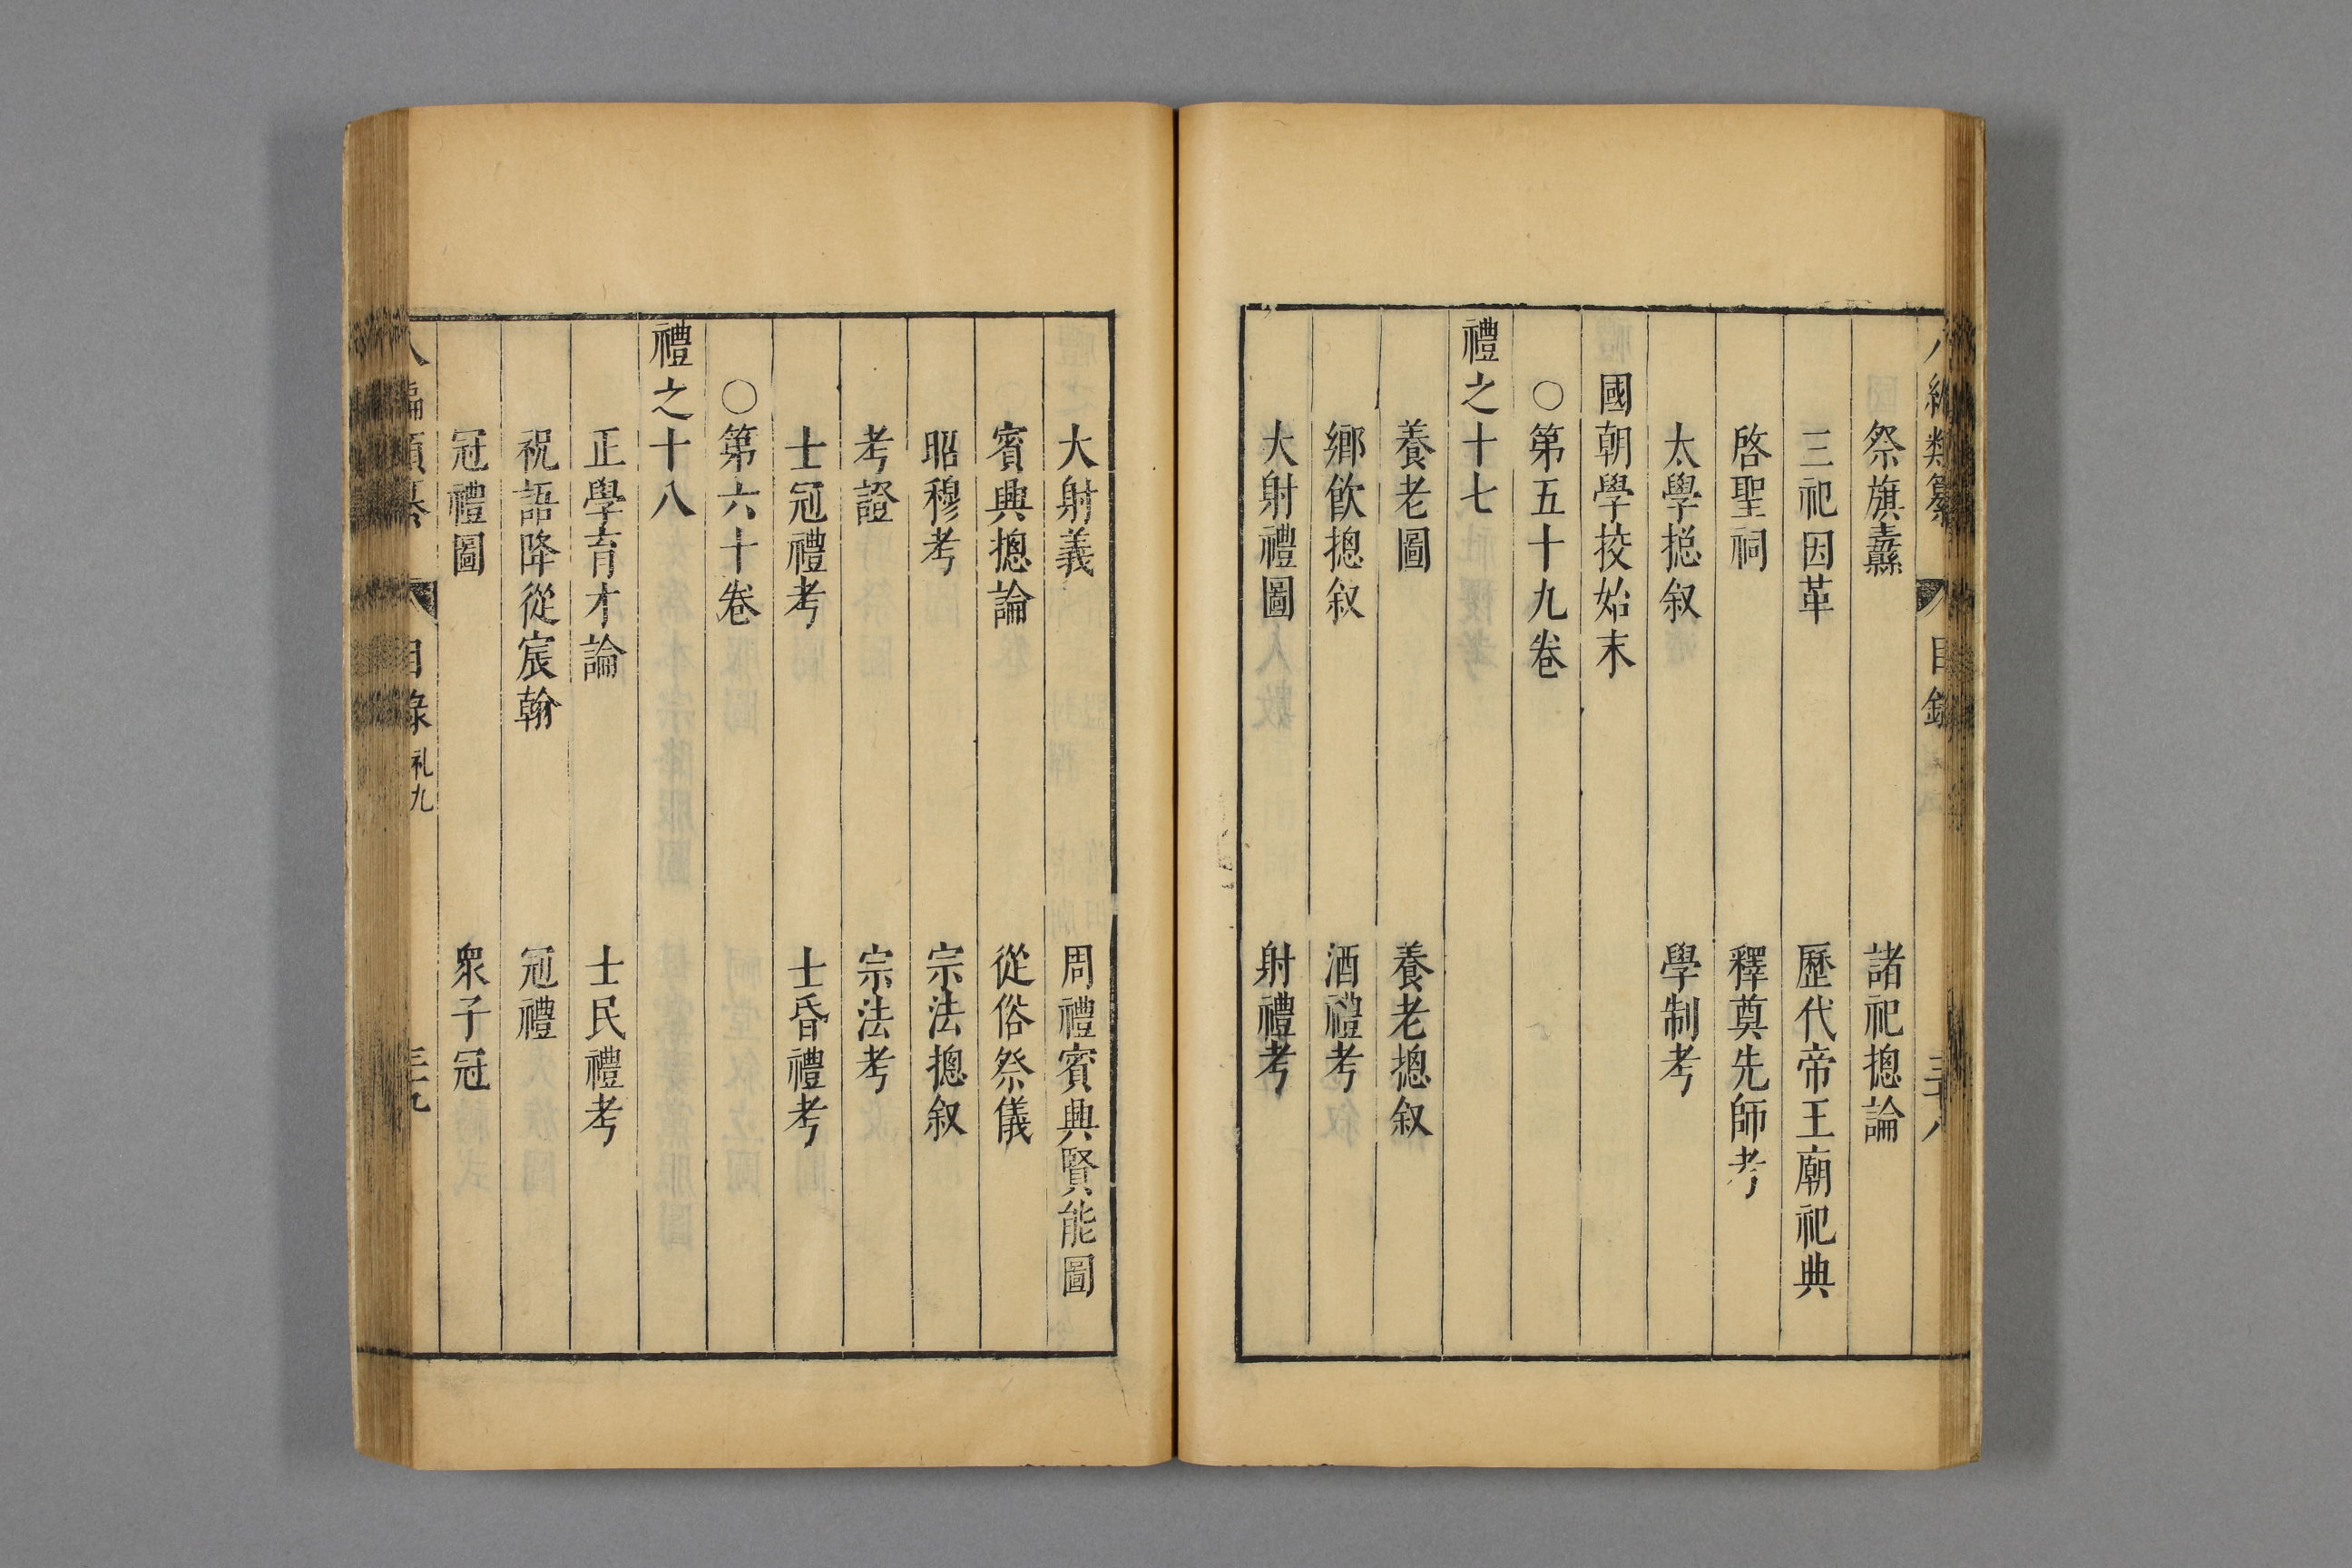 祭旗纛　諸祀摠論
三祀因革　歷代帝王廟祀典
啓聖祠　釋奠先師考
太學摠叙　學制考
國朝學挍始末
○第五十九卷
禮之十七
養老圖　養老摠叙
鄉飲摠叙　酒禮考
大射禮圖　射禮考
大射義　周禮賓興賢能圖
賓興摠論　從俗祭儀
昭穆考　宗法摠叙
考證　宗法考
士冠禮考　士昏禮考
○第六十卷
禮之十八
正學育才論　士民禮考
祝語降從宸翰　冠禮
冠禮圖　衆子冠
目錄 礼九